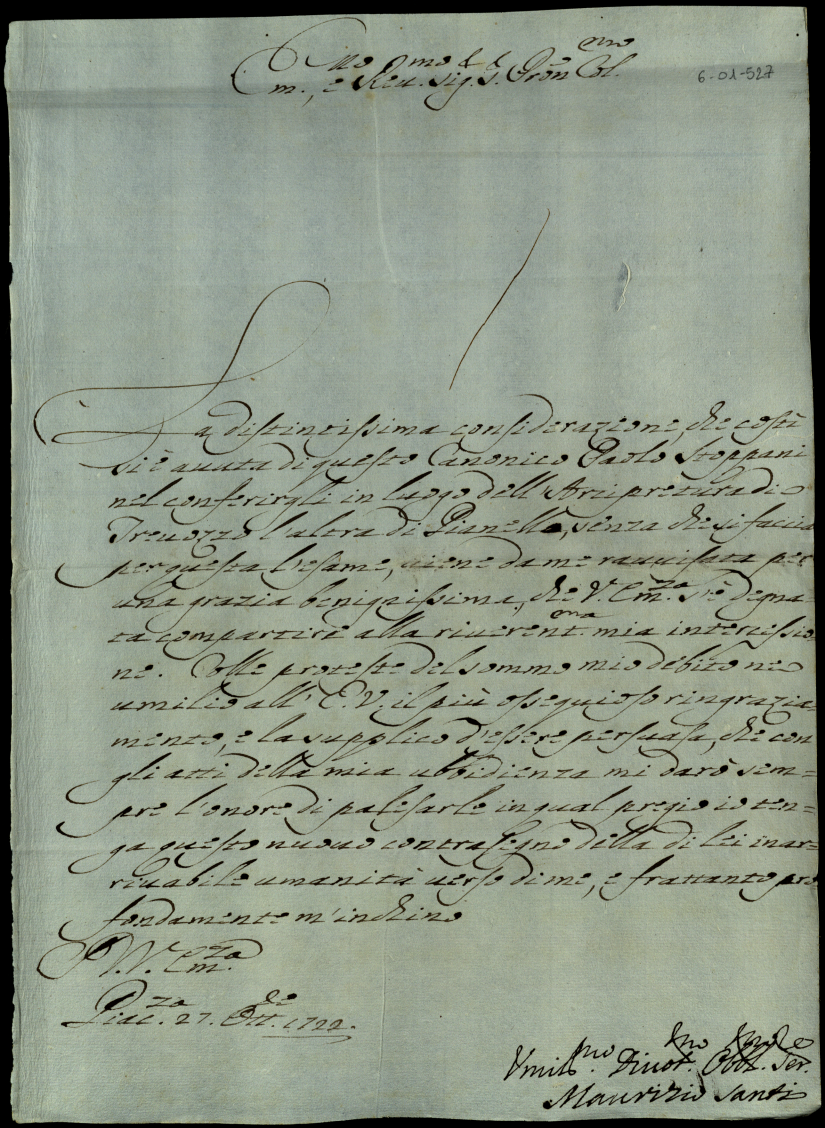 Em.mo e Reu.mo Sig.r, Sig.r Pròn Col.mo
6-01-527
La distintissima considerazione, che costì
si è auuta di questo Canonico Paolo Stoppani
nel conferirgli in luogo dell'Arcipretura di
Treuozzo l'altra di Pianello, senza che si faccia
per questa l'esame, uiene da me rauuisata per
una grazia benignissima, che V. Em.za si è degna
ta compartire alla riuerent.ma mia intercessio
ne. Colle proteste del sommo mio debito ne
umilio all'E.V. il più ossequioso ringrazia=
mento, e la supplico d'essere persuasa, che con
gli atti della mia ubbidienza mi darò sem=
pre l'onore di palesarle in qual pregio io ten=
ga questo nuouo contrasegno della di lei inar=
riuabile umanità uerso di me, e frattanto pro
fondamente m'inchino
D. V. Em.za
Piac.za 27. Ott.bre 1722.
Vmil.mo Diuot.mo Obbl.mo Ser.re
Maurizio Santi